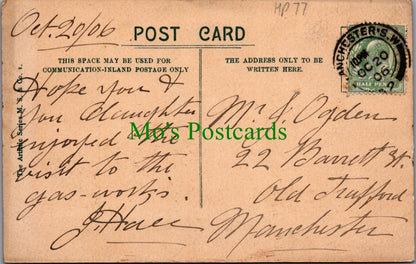 MP77
Oct. 20/06
POST CARD
THIS SPACE MAY BE USED FOR
COMMUNICATION-INLAND POSTAGE ONLY
THE ADDRESS ONLY TO BE
WRITTEN HERE.
MANCHESTER.S.W
OC 20
06
HALF PENNY
Hope you &
you daughter
enjoyed the
visit to the
gas-works.
J Hall
Mr J. Ogden
22 Barrett St.
Old Trafford
Manchester
Mo's Postcards
The Artistic Series